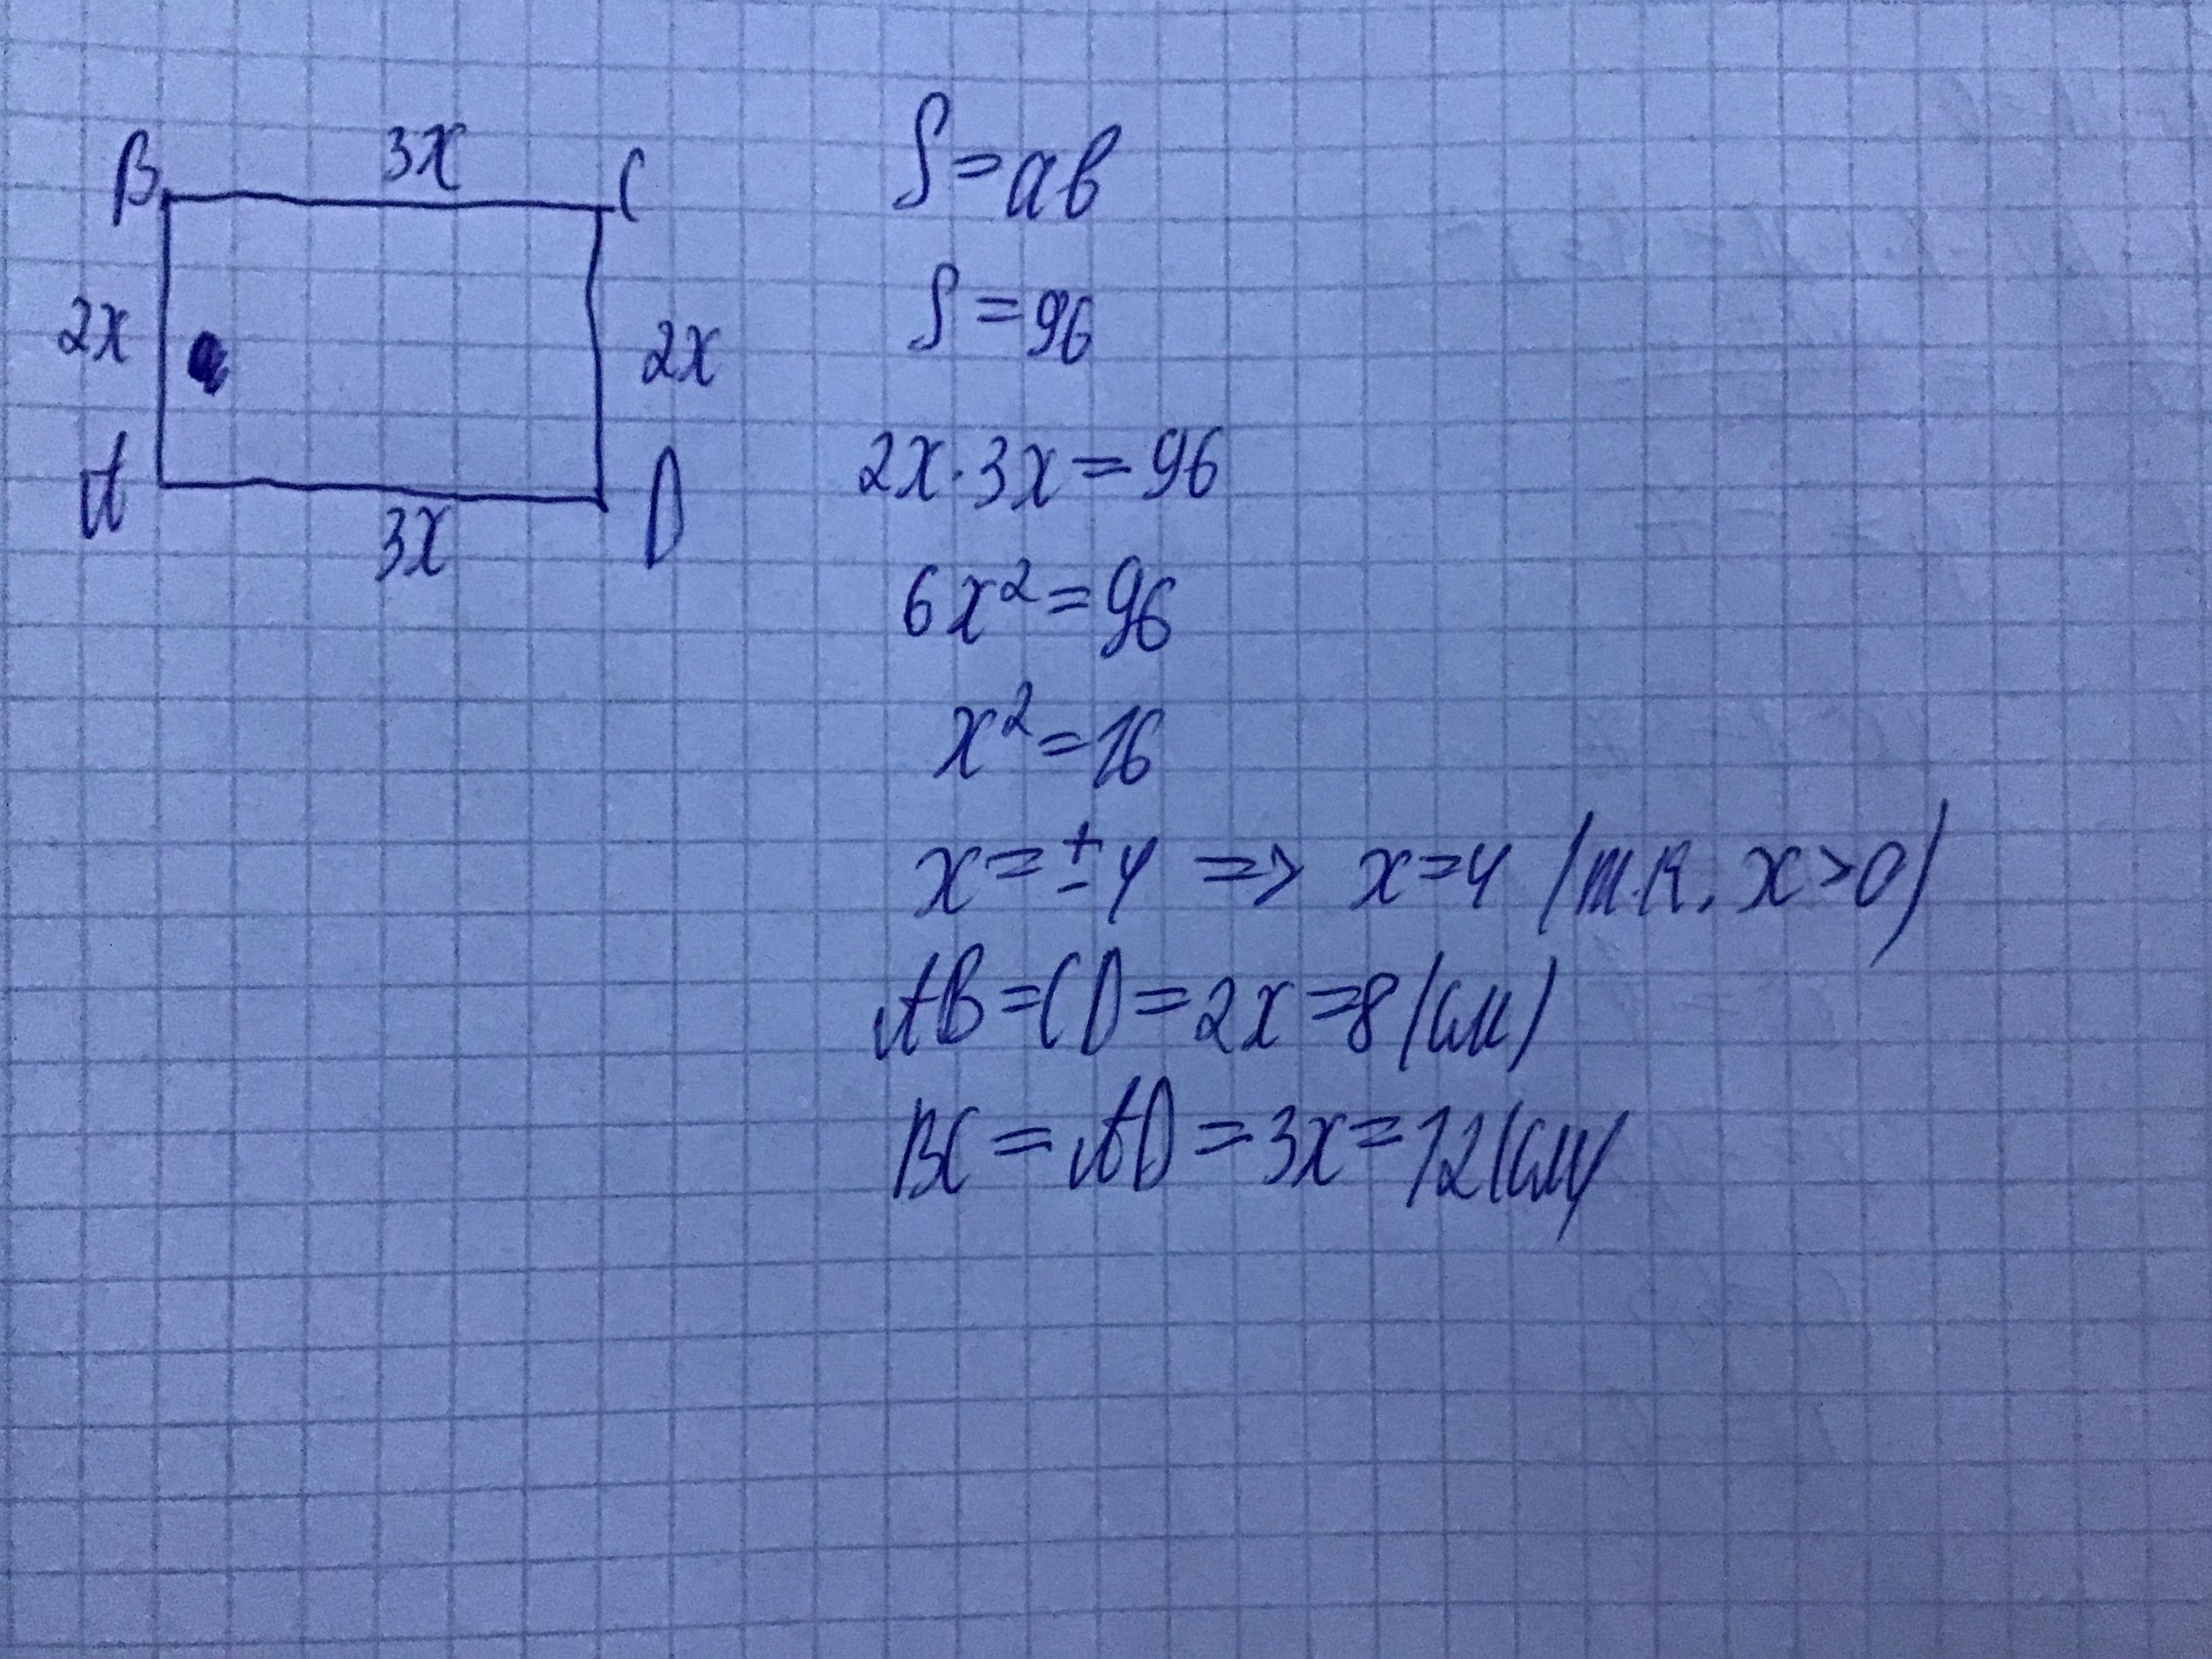 B 3x C
2x
2x
A D
3x
S=ab
S=96
2x·3x=96
6x²=96
x²=16
x=±4 => x=4 (т.к. x>0)
AB=CD=2x=8(см)
BC=AD=3x=12(см)